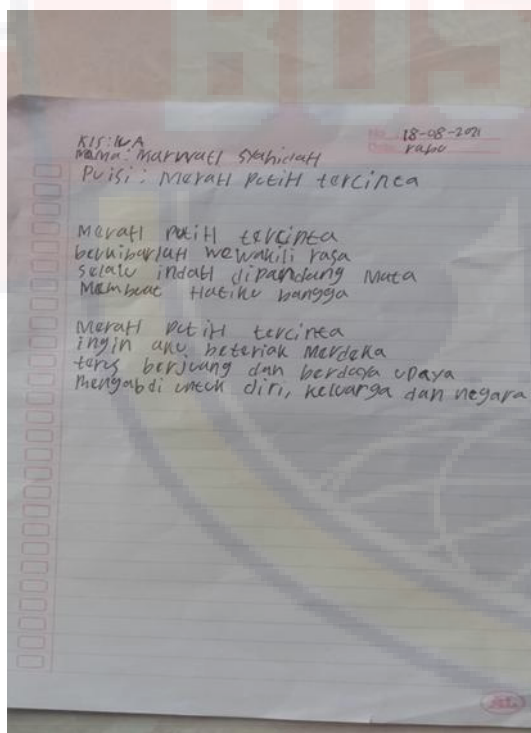 18-08-2021
Rabu
Kls: IV A
Nama: Marwati Syahidah
Puisi: Merah Putih tercinta
Merah Putih tercinta
berkibarlah wewakili rasa
selalu indah dipandang Mata
Membuat Hatiku bangga
Merah Putih tercinta
ingin aku beteriak Merdeka
terus berjuang dan berdaya upaya
mengabdi untuk diri, keluarga dan negara